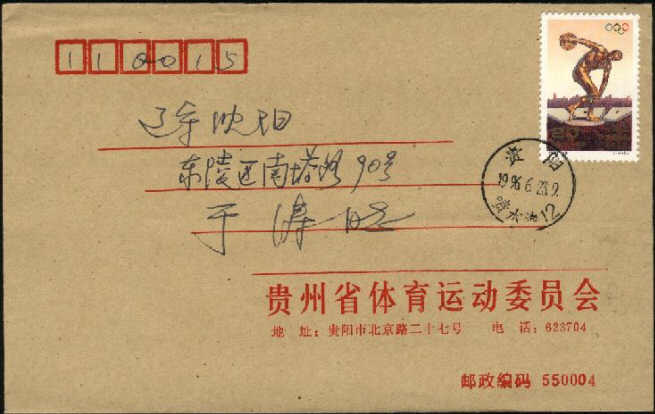 110015
辽宁沈阳
东陵区南塔路90号
于涛
贵阳
1996.6.23.9
12
贵州省体育运动委员会
地 址：贵阳市北京路二十七号 电 话：623704
邮政编码 550004